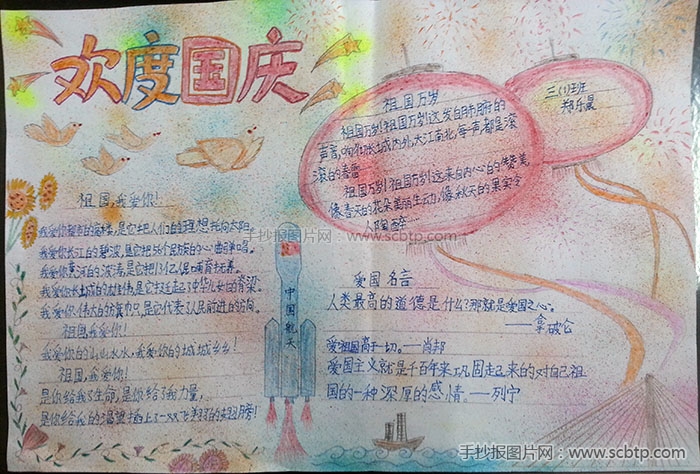 欢度国庆
祖国万岁
祖国万岁!祖国万岁!这发自肺腑的
声音,响彻长城内外,大江南北,每一声都是滚
滚的春雷
祖国万岁!祖国万岁!这来自内心的赞美,
像春天的花朵美丽生动,像秋天的果实令
人陶醉……
三(1)班
郑乐晨
祖国,我爱你!
是它把人们的理想托向太阳。
我爱你长江的碧波,是它把56个民族的心曲弹唱。
我爱你黄河的波涛,是它把13亿儿女哺育抚养。
我爱你长城的雄伟,是它挺起了中华儿女的脊梁。
我爱你伟大的旗帜,是它代表了人民前进的方向。
祖国,我爱你!
我爱你的山山水水,我爱你的城城乡乡!
祖国,我爱你!
是你给我了生命,是你给了我力量,
是你给我的渴望插上了一双飞翔的翅膀!
中国航天
爱国名言
人类最高的道德是什么?那就是爱国之心。
——拿破仑
爱祖国高于一切。——肖邦
爱国主义就是千百年来巩固起来的对自己祖
国的一种深厚的感情。——列宁
手抄报图片网-www.scbtp.com
手抄报图片网-www.scbtp.com